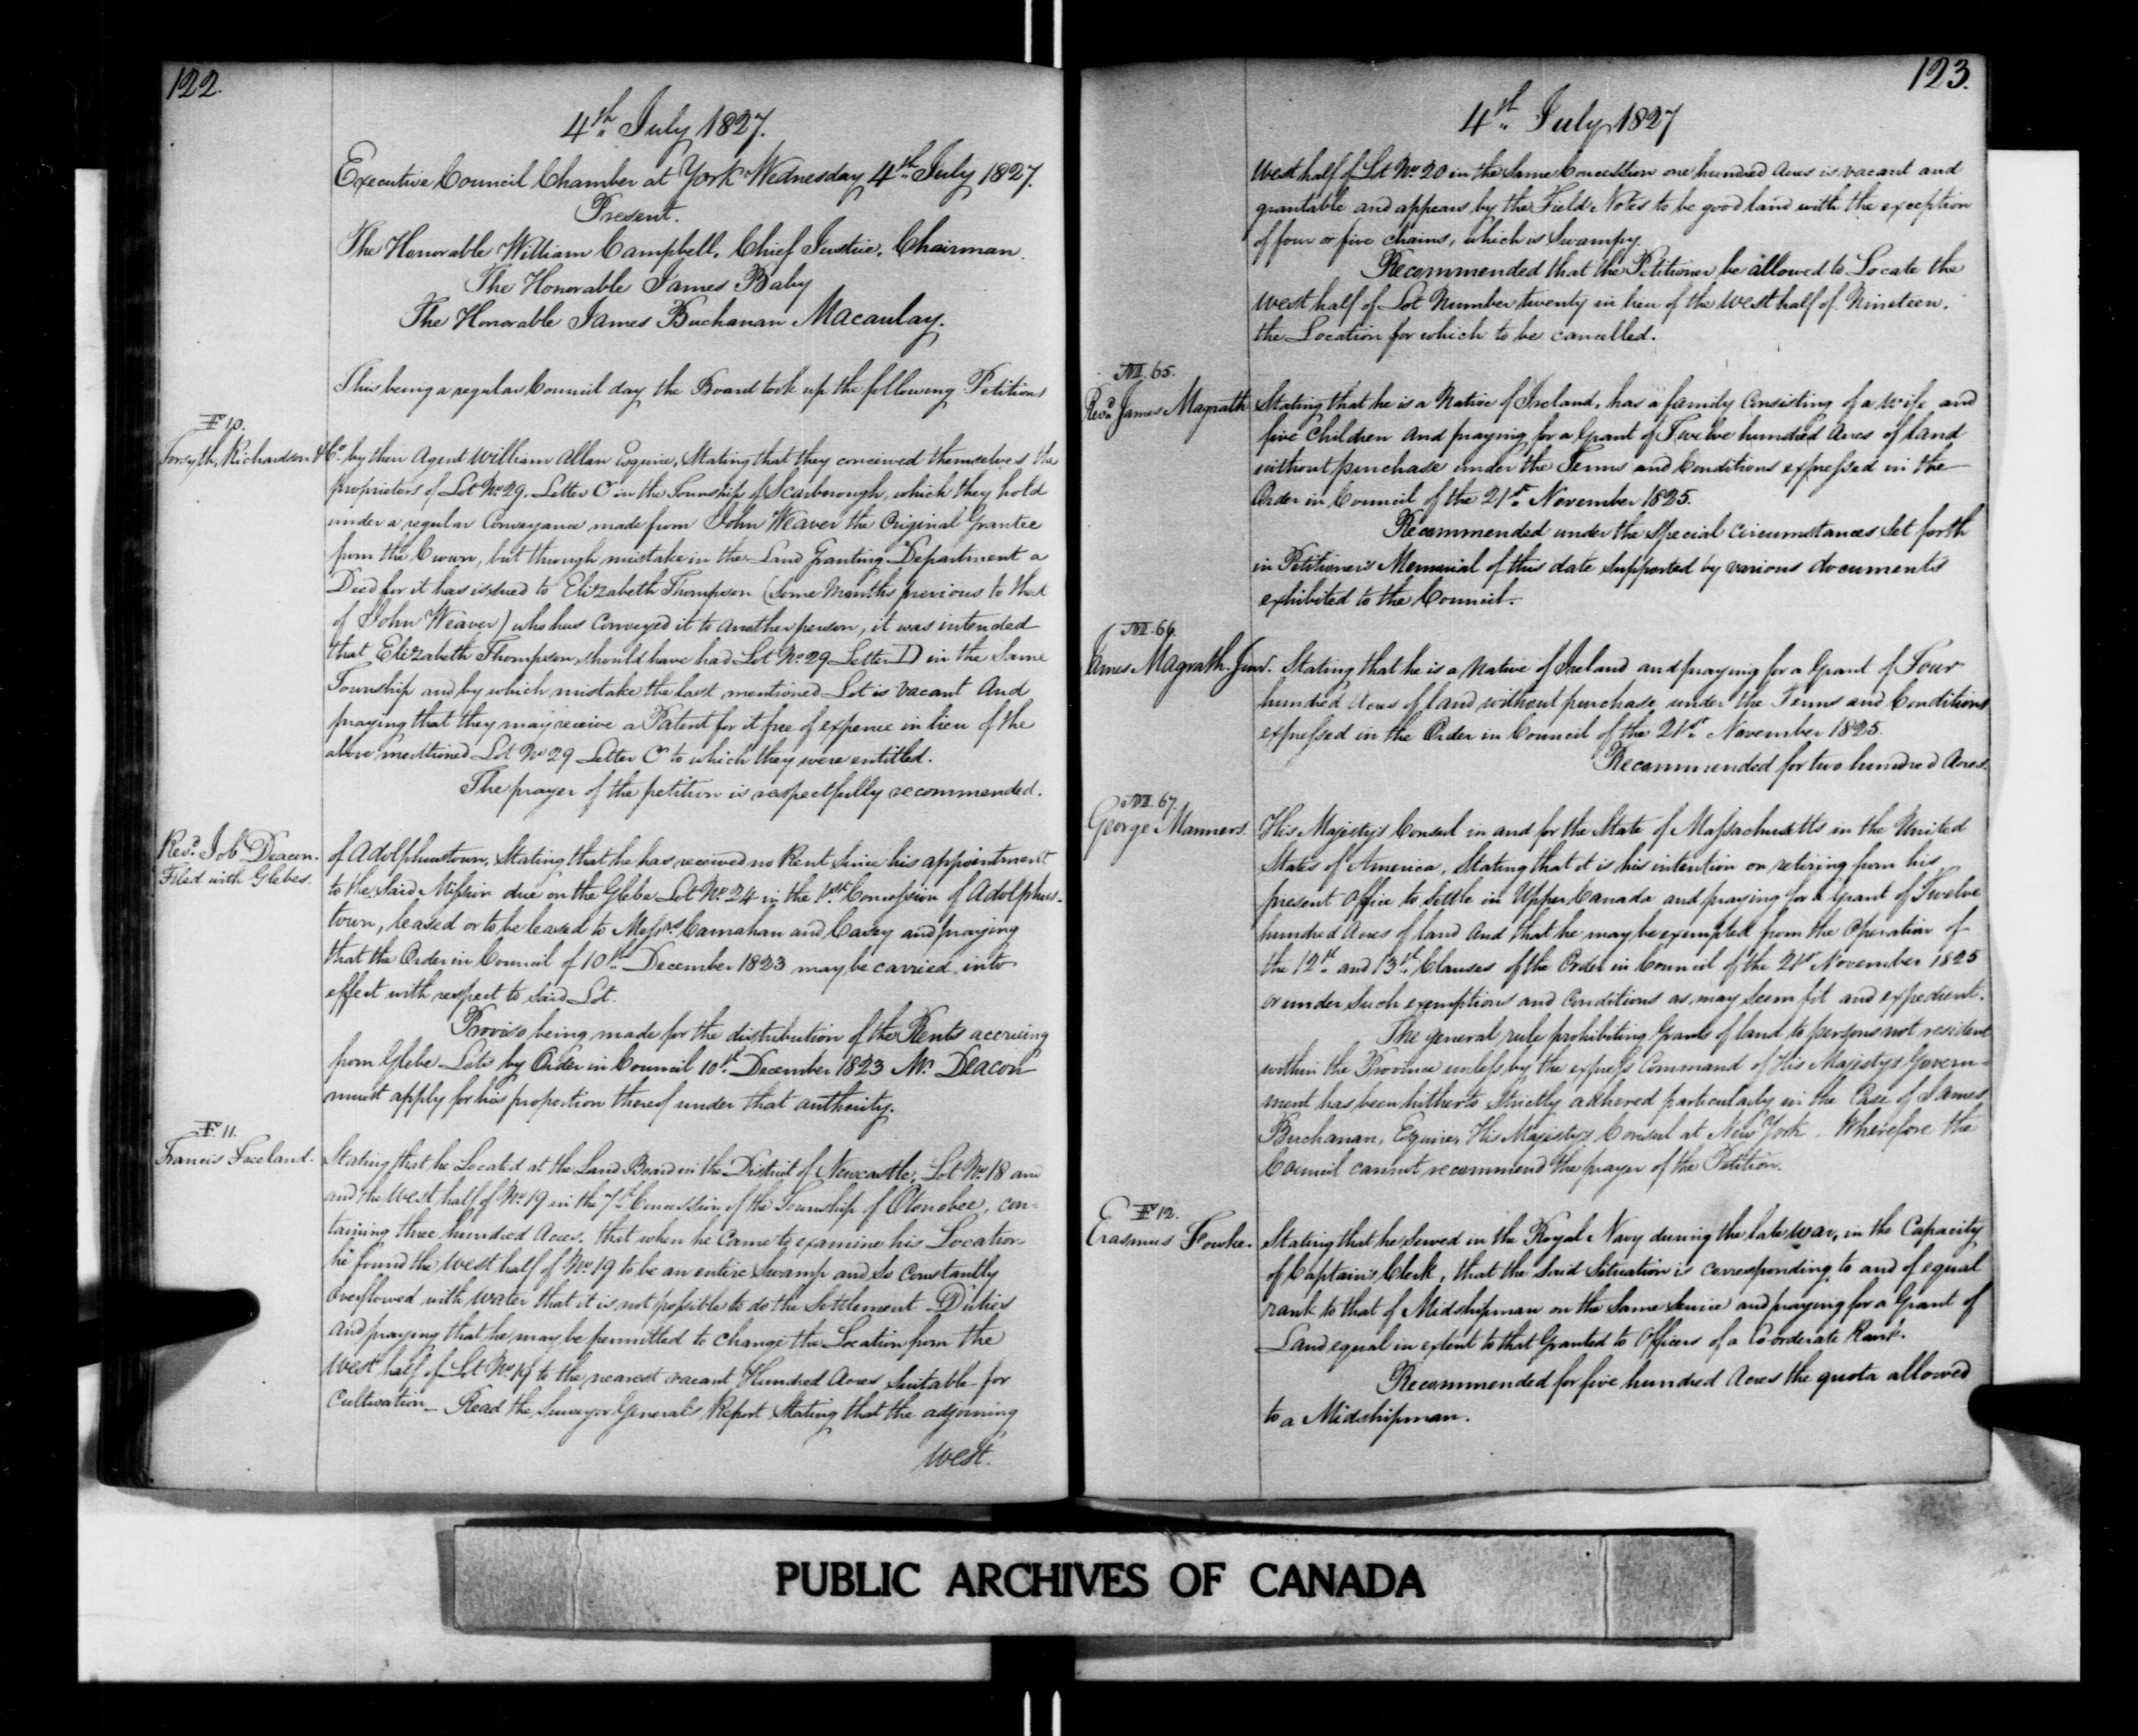 122.
4th July 1827.
Executive Council Chamber at York Wednesday 4th July 1827.
Present.
The Honorable William Campbell, Chief Justice, Chairman.
The Honorable James Baby
The Honorable James Buchanan Macaulay.
This being a regular Council day the Board took up the following Petitions
F 10.
Forsyth, Richardson & Co. by their Agent William Allan Esquire, Stating that they conceived themselves the
proprietors of Lot No. 29. Letter C in the Township of Scarborough, which they hold
under a regular Conveyance made from John Weaver the Original Grantee
from the Crown, but through mistake in the Land Granting Department a
Deed for it has issued to Elizabeth Thompson (some Months previous to that
of John Weaver) who has Conveyed it to another person, it was intended
that Elizabeth Thompson should have had Lot No. 29 Letter D in the Same
Township and by which mistake the last mentioned Lot is vacant And
praying that they may receive a Patent for it free of expence in lieu of the
above mentioned Lot No 29 Letter C to which they were entitled.
The prayer of the petition is respectfully recommended.
Revd. Job Deacon.
Filed with Glebes.
of Adolphustown, Stating that he has received no Rent Since his appointment
to the Said Mission due on the Glebe Lot No. 24 in the 1st Concession of Adolphus-
town, leased or to be leased to Messrs Carnahan and Casey and praying
that the Order in Council of 10th December 1823 may be carried into
effect with respect to Said Lot.
Proviso being made for the distribution of the Rents accruing
from Glebe Lots by Order in Council 10th December 1823 Mr. Deacon
must apply for his proportion thereof under that authority.
F 11.
Francis Faceland.
Stating that he Located at the Land Board in the District of Newcastle, Lot No. 18 and
and the West half of No. 19 in the 7th Concession of the Township of Otonobee, con-
taining three hundred Acres. that when he Came to examine his Location
he found the West half of No. 19 to be an entire Swamp and So Constantly
overflowed with water that it is not possible to do the Settlement Duties
and praying that he may be permitted to change the Location from the
West half of Lot No. 19 to the nearest vacant Hundred Acres Suitable for
Cultivation - Read the Surveyor General's Report Stating that the adjoining
West.
123.
4th July 1827
West half of Lot No. 20 in the Same Concession one hundred Acres is vacant and
grantable and appears by the Field Notes to be good land with the exception
of four or five chains, which is Swampy.
Recommended that the Petitioner be allowed to Locate the
West half of Lot Number twenty in lieu of the West half of Nineteen,
the Location for which to be cancelled.
M. 65.
Revd. James Magrath
Stating that he is a Native of Ireland, has a family Consisting of a wife and
five Children And praying for a Grant of Twelve hundred Acres of land
without purchase under the Terms and Conditions expressed in the
Order in Council of the 21st November 1825.
Recommended under the Special Circumstances Set forth
in Petitioner's Memorial of this date Supported by various documents
exhibited to the Council.
M. 66.
James Magrath. Junr. Stating that he is a Native of Ireland and praying for a Grant of Four
hundred Acres of land without purchase, under the Terms and Conditions
expressed in the Order in Council of the 21st November 1825.
Recommended for two hundred Acres.
M. 67.
George Manners.
His Majesty's Consul in and for the State of Massachusetts in the United
States of America, Stating that it is his intention on retiring from his
present Office to Settle in Upper Canada and praying for a Grant of Twelve
hundred Acres of land And that he may be exempted from the Operation of
the 12th and 13th Clauses of the Order in Council of the 21st November 1825
or under Such exemptions and Conditions as may Seem fit and expedient.
The general rule prohibiting Grants of land to persons not resident
within the Province unless by the express Command of His Majesty's Govern-
ment has been hitherto Strictly adhered particularly in the Case of James
Buchanan, Esquire, His Majesty's Consul at New York. Wherefore the
Council cannot recommend the prayer of the Petition.
F 12.
Erasmus Fowke.
Stating that he Served in the Royal Navy during the late War, in the Capacity
of Captain's Clerk, that the Said Situation is Corresponding to and of equal
rank to that of Midshipman on the Same Service and praying for a Grant of
Land equal in extent to that Granted to Officers of a Coorderate Rank.
Recommended for five hundred Acres the quota allowed
to a Midshipman.
PUBLIC ARCHIVES OF CANADA